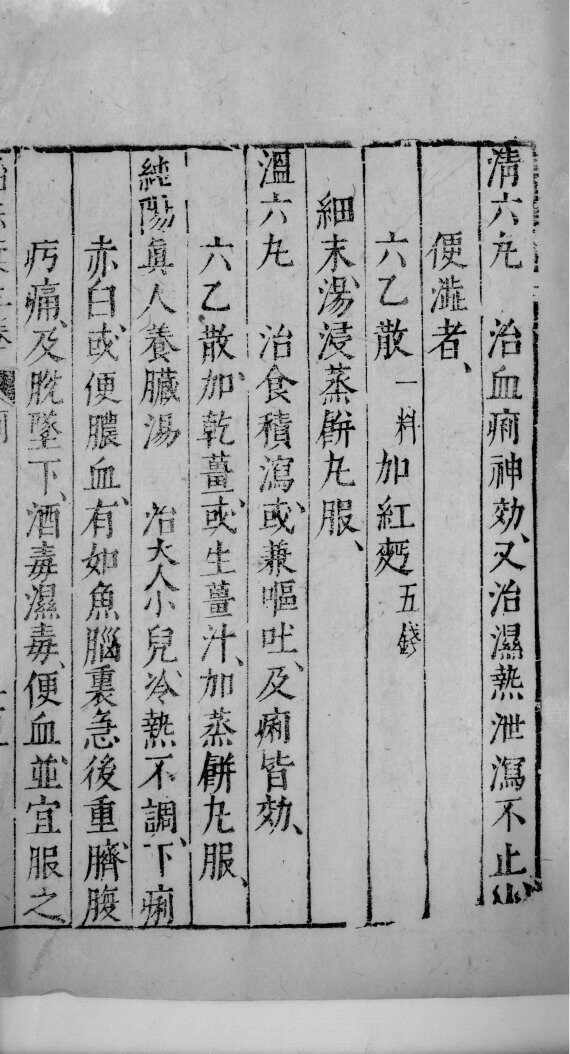 清六丸　治血痢神効、又治濕熱泄瀉不止
便澁者、
六乙散一料加紅麯五錢
細末、湯浸蒸餠丸服、
溫六丸　治食積瀉、或兼嘔吐、及痢皆効、
六乙散、加乾薑、或生薑汁、加蒸餠丸服、
純陽眞人養臟湯　治大人小兒、冷熱不調、下痢
赤白、或便膿血、有如魚腦、裏急後重、臍腹
㽲痛、及脫墜下、酒毒濕毒、便血、並宜服之、